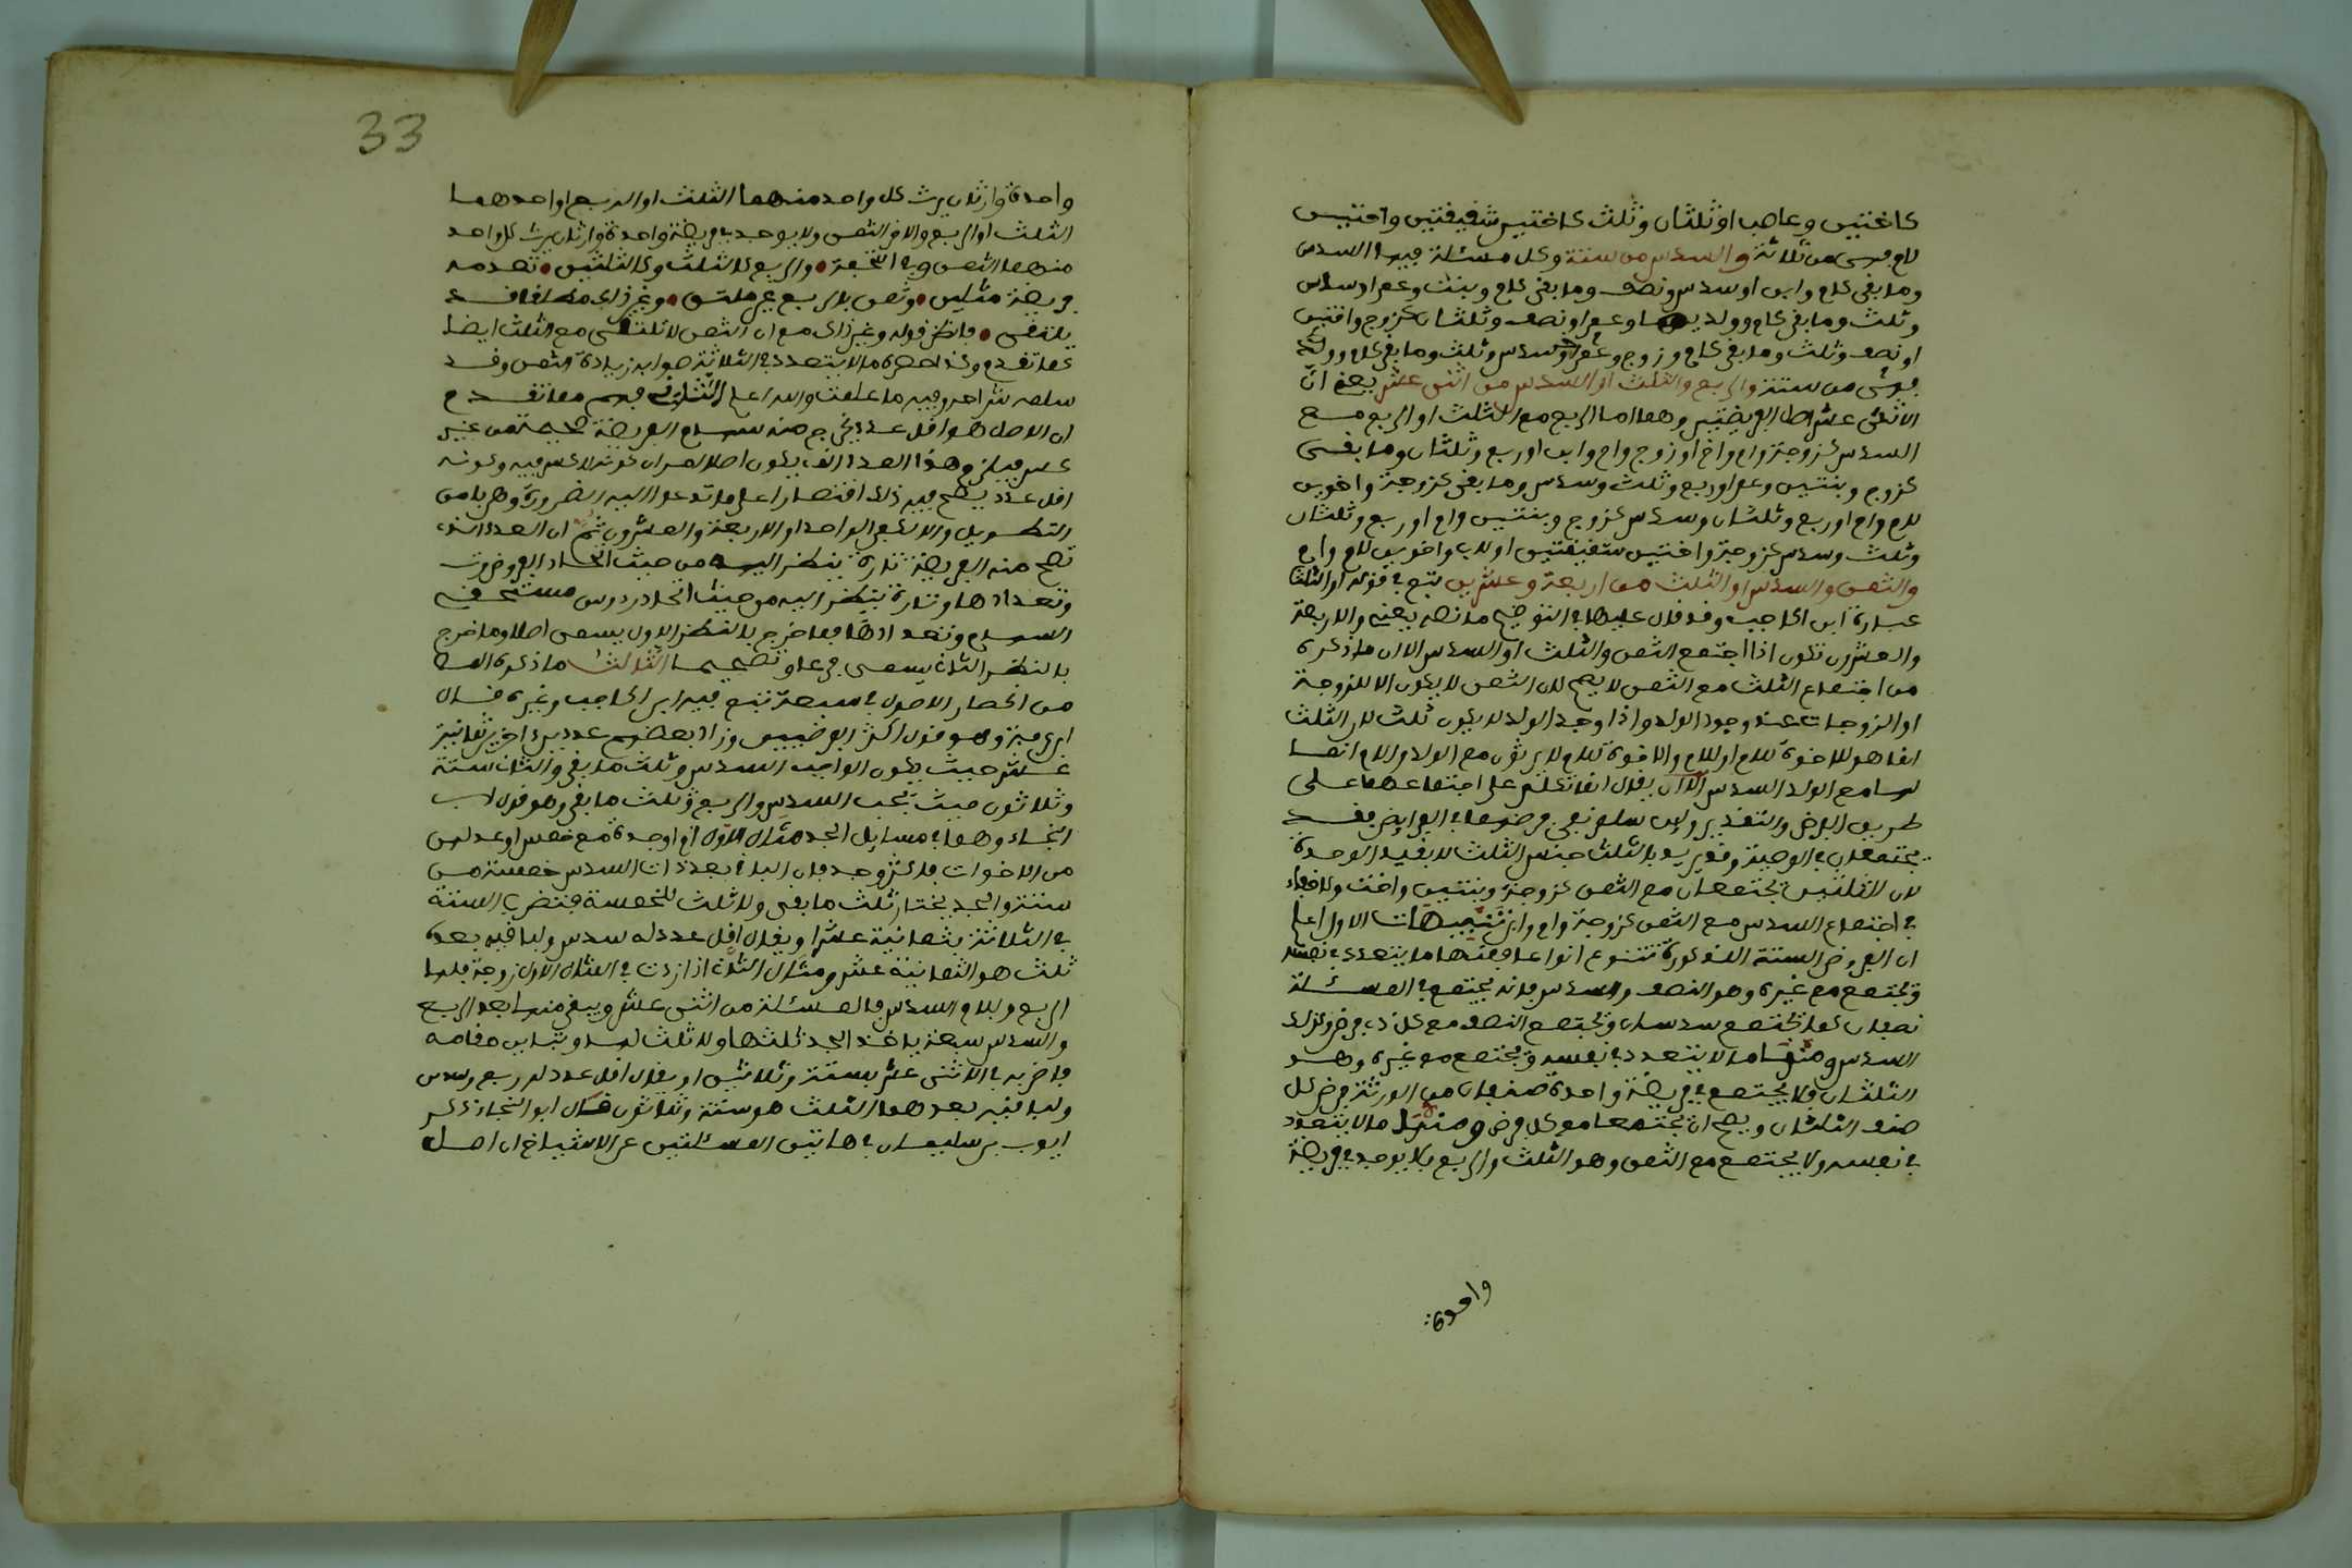 كاختين وعاصب او ثلثان وثلث كاختين شقيقتين واختين
لام فهي من ثلاثة والسدس من ستة وكل مسئلة فيها السدس
وما بقي كام وابن او سدس ونصف وما بقي كام وبنت وعم او سدس
وثلث وما بقي كام وولديها وعم او نصف وثلثان كزوج واختين
او نصف وثلث وما بقي كام وزوج وعم او سدس وثلث وما بقي كام وولدي
فهي من ستة والربع والثلث او السدس من اثني عشر يعني ان
الاثنى عشر اصل الفريضتين وهما اما الربع مع الثلث او الربع مع
السدس كزوجة وام واخ او زوج وام وابن او ربع وثلثان وما بقي
كزوج وبنتين وعم او ربع وثلث وسدس وما بقي كزوجة واخوين
لام وام او ربع وثلثان وسدس كزوج وبنتين وام او ربع وثلثان
وثلث وسدس كزوجة واختين شقيقتين او لاب واخوين لام وام
والثمن والسدس او الثلث من اربعة وعشرين تبع في قوله او الثلث
عبارة ابن الحاجب وقد قال عليها في التوضيح ما نصه يعني والاربعة
والعشرون تكون اذا اجتمع الثمن والثلث او السدس الا ان ما ذكره
من اجتماع الثلث مع الثمن لا يصح لان الثمن لا يكون الا للزوجة
او الزوجات عند وجود الولد واذا وجد الولد لا يكون ثلث لان الثلث
انما هو للاخوة للام او للام والاخوة للام لا يرثون مع الولد والام انما
لها مع الولد السدس الا ان يقال انما تكلم على اجتماعهما على
طريق الفرض والتقدير وان سلم نفي فرضهما في الفرايض فقد
يجتمعان في الوصية وقد يريد بالثلث جنس الثلث لا بقيد الوحدة
لان الثلثين يجتمعان مع الثمن كزوجة وبنتين واخت ولا خفاء
في اجتماع السدس مع الثمن كزوجة وام وابن تنبيهات الاول اعلم
ان الفروض الستة المذكورة تتنوع انواعا فمنها ما يتعدد في نفسه
ويجتمع مع غيره وهو النصف والسدس فانه يجتمع في المسئلة
نصفان كما يجتمع سدسان ويجتمع النصف مع كل ذي فرض وكذلك
السدس ومنها ما لا يتعدد في نفسه ويجتمع مع غيره وهو
الثلثان فلا يجتمع في فريضة واحدة صنفان من الورثة فرض كل
صنف الثلثان ويصح ان يجتمعا مع كل فرض ومنها ما لا يتعدد
في نفسه ولا يجتمع مع الثمن وهو الثلث والربع فلا يوجد في فريضة
واحدة
33
واحدة وارثان يرث كل واحد منهما الثلث او الربع او احدهما
الثلث او الربع والاخر الثمن ولا يوجد في فريضة واحدة وارثان يرث كل واحد
منهما الثمن وفي التحفة والربع كالثلث وكالثلثين تعدمه
فريضة مثلين وثمن بالربع غير ملتق وغير ذاك مطلقا قد
يلتقي فانظر قوله وغير ذاك مع ان الثمن لا يلتقي مع الثلث ايضا
كما تقدم وكذا حصره ما لا يتعدد في الثلاثة صوابه زيادة الثمن وقد
سلمه شراحه وفيه ما علمت والله اعلم الثاني فهم مما تقدم
ان الاصل هو اقل عدد يخرج منه سهام الفريضة صحيحة من غير
كسر فيلزم هذا العدد الذي يكون اصلا امران كونه لا كسر فيه وكونه
اقل عدد يصح فيه ذلك اقتصارا على ما تدعو اليه الضرورة وهربا من
التطويل والا لكفى الواحد او الاربعة والعشرون ثم ان العدد الذي
تصح منه الفريضة تارة ينظر اليه من حيث اتحاد الفروض
وتعدادها وتارة ينظر اليه من حيث اتحاد رءوس مستحقي
السهام وتعدادها فما خرج بالنظر الاول يسمى اصلا وما خرج
بالنظر الثاني يسمى فرعا وتصحيحا الثالث ما ذكره المص
من انحصار الاصول في سبعة تبع فيه ابن الحاجب وغيره قال
ابن عرفة وهو قول اكثر الفرضيين وزاد بعضهم عددين اخرين ثمانية
عشر حيث يكون الواجب السدس وثلث ما بقي والثاني ستة
وثلاثون حيث يجب السدس والربع وثلث ما بقي وهو قول ابي
النجاء وهما في مسايل الجد مثال الاول ام وجدة مع خمس او عدلهن
من الاخوات فاكثر وجد فان الباقي بعد ذات السدس خمسة من
ستة والجد يختار ثلث ما بقي ولا ثلث للخمسة فتضرب الستة
في الثلاثة بثمانية عشر او يقال اقل عدد له سدس ولباقيه بعده
ثلث هو الثمانية عشر ومثال الثاني اذا زدت في المثال الاول زوجة فلها
الربع وللام السدس فالمسئلة من اثني عشر ويبقى منها بعد الربع
والسدس سبعة ياخذ الجد ثلثها ولا ثلث لها وتباين مقامه
فاضربه في الاثنى عشر بستة وثلاثين او يقال اقل عدد له ربع وسدس
ولباقيه بعدهما الثلث هو ستة وثلاثون قال ابو النجاء ذكر
ايوب بن سليمان في هاتين المسئلتين عن الاشياخ ان اصل